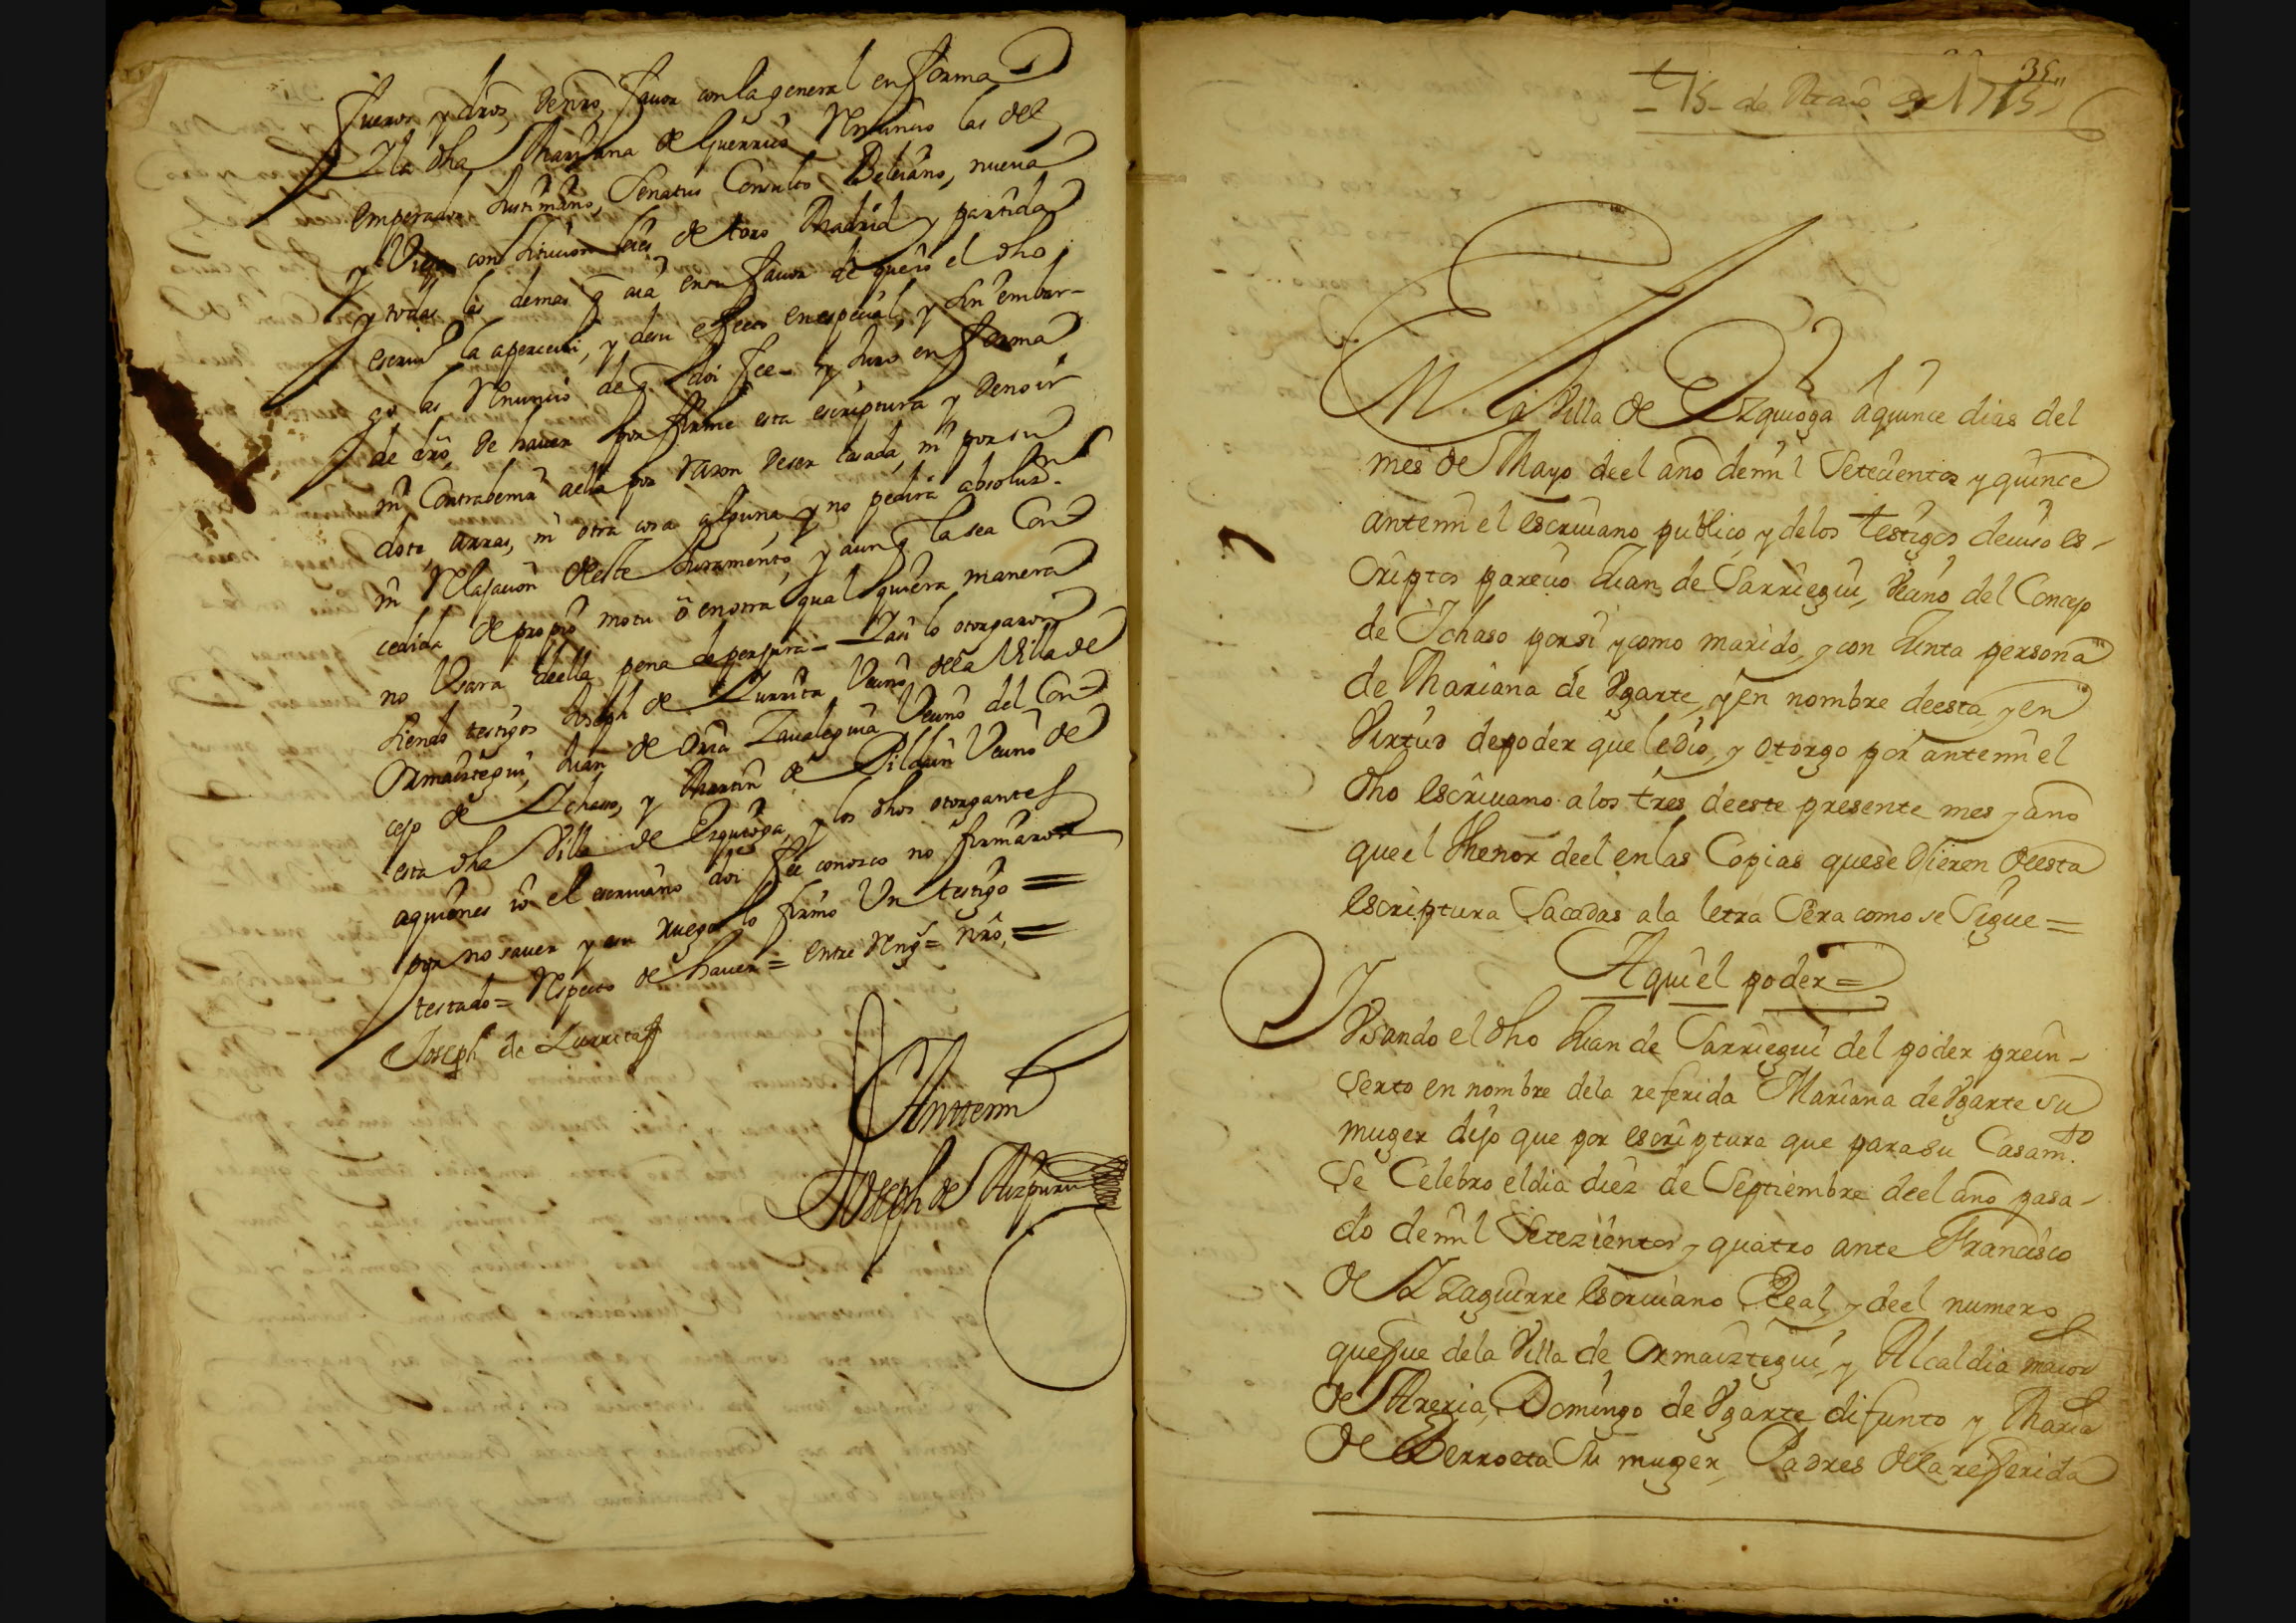 fueros y dr̃os de nr̃o favor con la general en forma
Y la dha Mariana de Guerrico Renuncio las del
emperador Justiniano, Senatus Consulto Beleiano, nueva
y Vieja constitucion leies de toro Madrid y partida
y todas las demas q̃ aia en su favor de que io el dho
escriuº la aperceui, y de su efecto en especial, y sin embar-
go las Renuncio de q̃ doi fee- y Juro en forma
de dr̃o, de hauer por firme esta escriptura y de no ir
ni Contrabenir a ella por razon de ser casada, ni por su
dote, arras, ni otra cosa alguna, y no pedira absoluon
ni Relajacion de este Juramento, y aunq̃ la sea Con-
cedida de propio motu ô en otra qual quiera manera
no Usara de ella pena de perjura- Y asi lo otorgaron
siendo testigos Joseph de Zurrita Vecino de la Villa de
Ormaiztegui, Juan de Oria Zaualegui Vecino del Con-
cejo de Ychaso, y Martin de Pildain Vecino de
esta dha Villa de Ezquioga, y los dhos otorgantes
aquienes io el escriuano doi fee conozco no firmaron
por no sauer y a su ruego lo firmo Un testigo =
testado= Respecto de hauer= entre Reng̃s= nr̃o, =
Joseph de Zurrita
Anttemi
Joseph de Aizpuru
35
15 de Mayo de 1715
En la Villa de Ezquioga â quince dias del
mes de Mayo de el año de mil Setecientos y quince
ante mi el escriuano publico, y de los testigos de iuso es-
Criptos parecio Juan de Sarriegui, Vecino del Concejo
de Ichaso por si y como marido, y con Junta persona
de Mariana de Vgarte, y en nombre de esta, y en
Virtud de poder que le dio, y otorgo por ante mi el
dho escriuano a los tres de este presente mes y año
que el thenor de el en las Copias que se dieren de esta
escriptura Sacadas a la letra Sera como se Sigue =
Aqui el poder =
Vsando el dho Juan de Sarriegui del poder prein-
Serto en nombre de la referida Mariana de Vgarte su
muger dijo que por escriptura que para su Casam.to
Se Celebro el dia diez de Septiembre de el año pasa-
do de mil Setezientos y quatro ante Francisco
de Yzaguirre escriuano Real y de el numero
que fue de la Villa de Ormaiztegui, y Alcaldia maior
de Areria, Domingo de Vgarte difunto y Maria
de Berroeta su muger, Padres de la referida